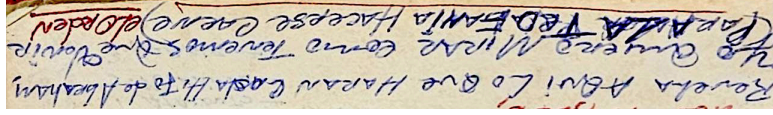 Revela AQui Lo Que HARAN Cada Hijo de Abraham,
Yo Quiero MIRAR como Tenemos Que Venir
(PARA LA TEOFANIA HACERSE CARNE) elORDEN